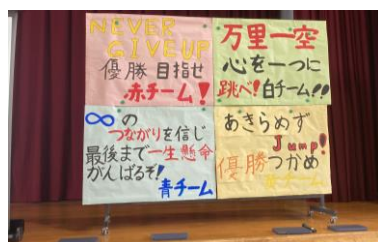 NEVER
GIVEUP
優勝目指せ
赤チーム!
万里一空
心を一つに
跳べ!白チーム!!
∞の
つながりを信じ
最後まで一生懸命
がんばるぞ!
青チーム
あきらめず
Jump!
優勝つかめ
チーム